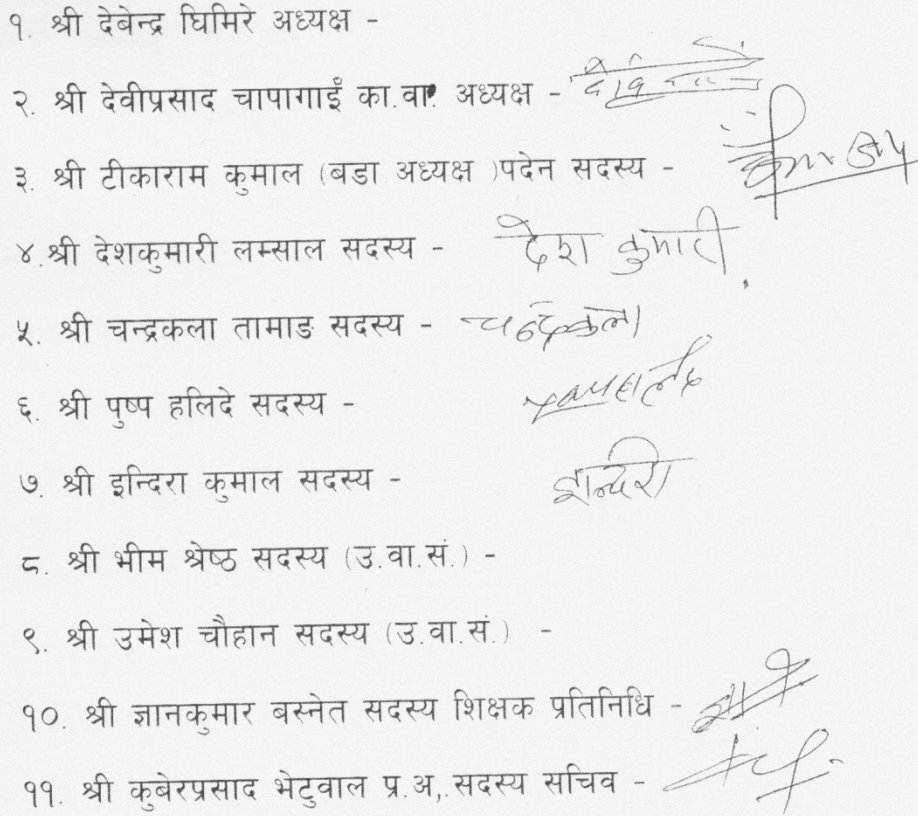 १. श्री देबेन्द्र घिमिरे अध्यक्ष -
२. श्री देवीप्रसाद चापागाईं का.वा. अध्यक्ष -
३. श्री टीकाराम कुमाल (बडा अध्यक्ष )पदेन सदस्य -
४.श्री देशकुमारी लम्साल सदस्य - देश कुमारी
५. श्री चन्द्रकला तामाङ सदस्य - चन्द्रकला
६. श्री पुष्प हलिदे सदस्य -
७. श्री इन्दिरा कुमाल सदस्य - इन्दिरा
८. श्री भीम श्रेष्ठ सदस्य (उ.वा.सं.) -
९. श्री उमेश चौहान सदस्य (उ.वा.सं.) -
१०. श्री ज्ञानकुमार बस्नेत सदस्य शिक्षक प्रतिनिधि -
११. श्री कुबेरप्रसाद भेटुवाल प्र.अ,. सदस्य सचिव -